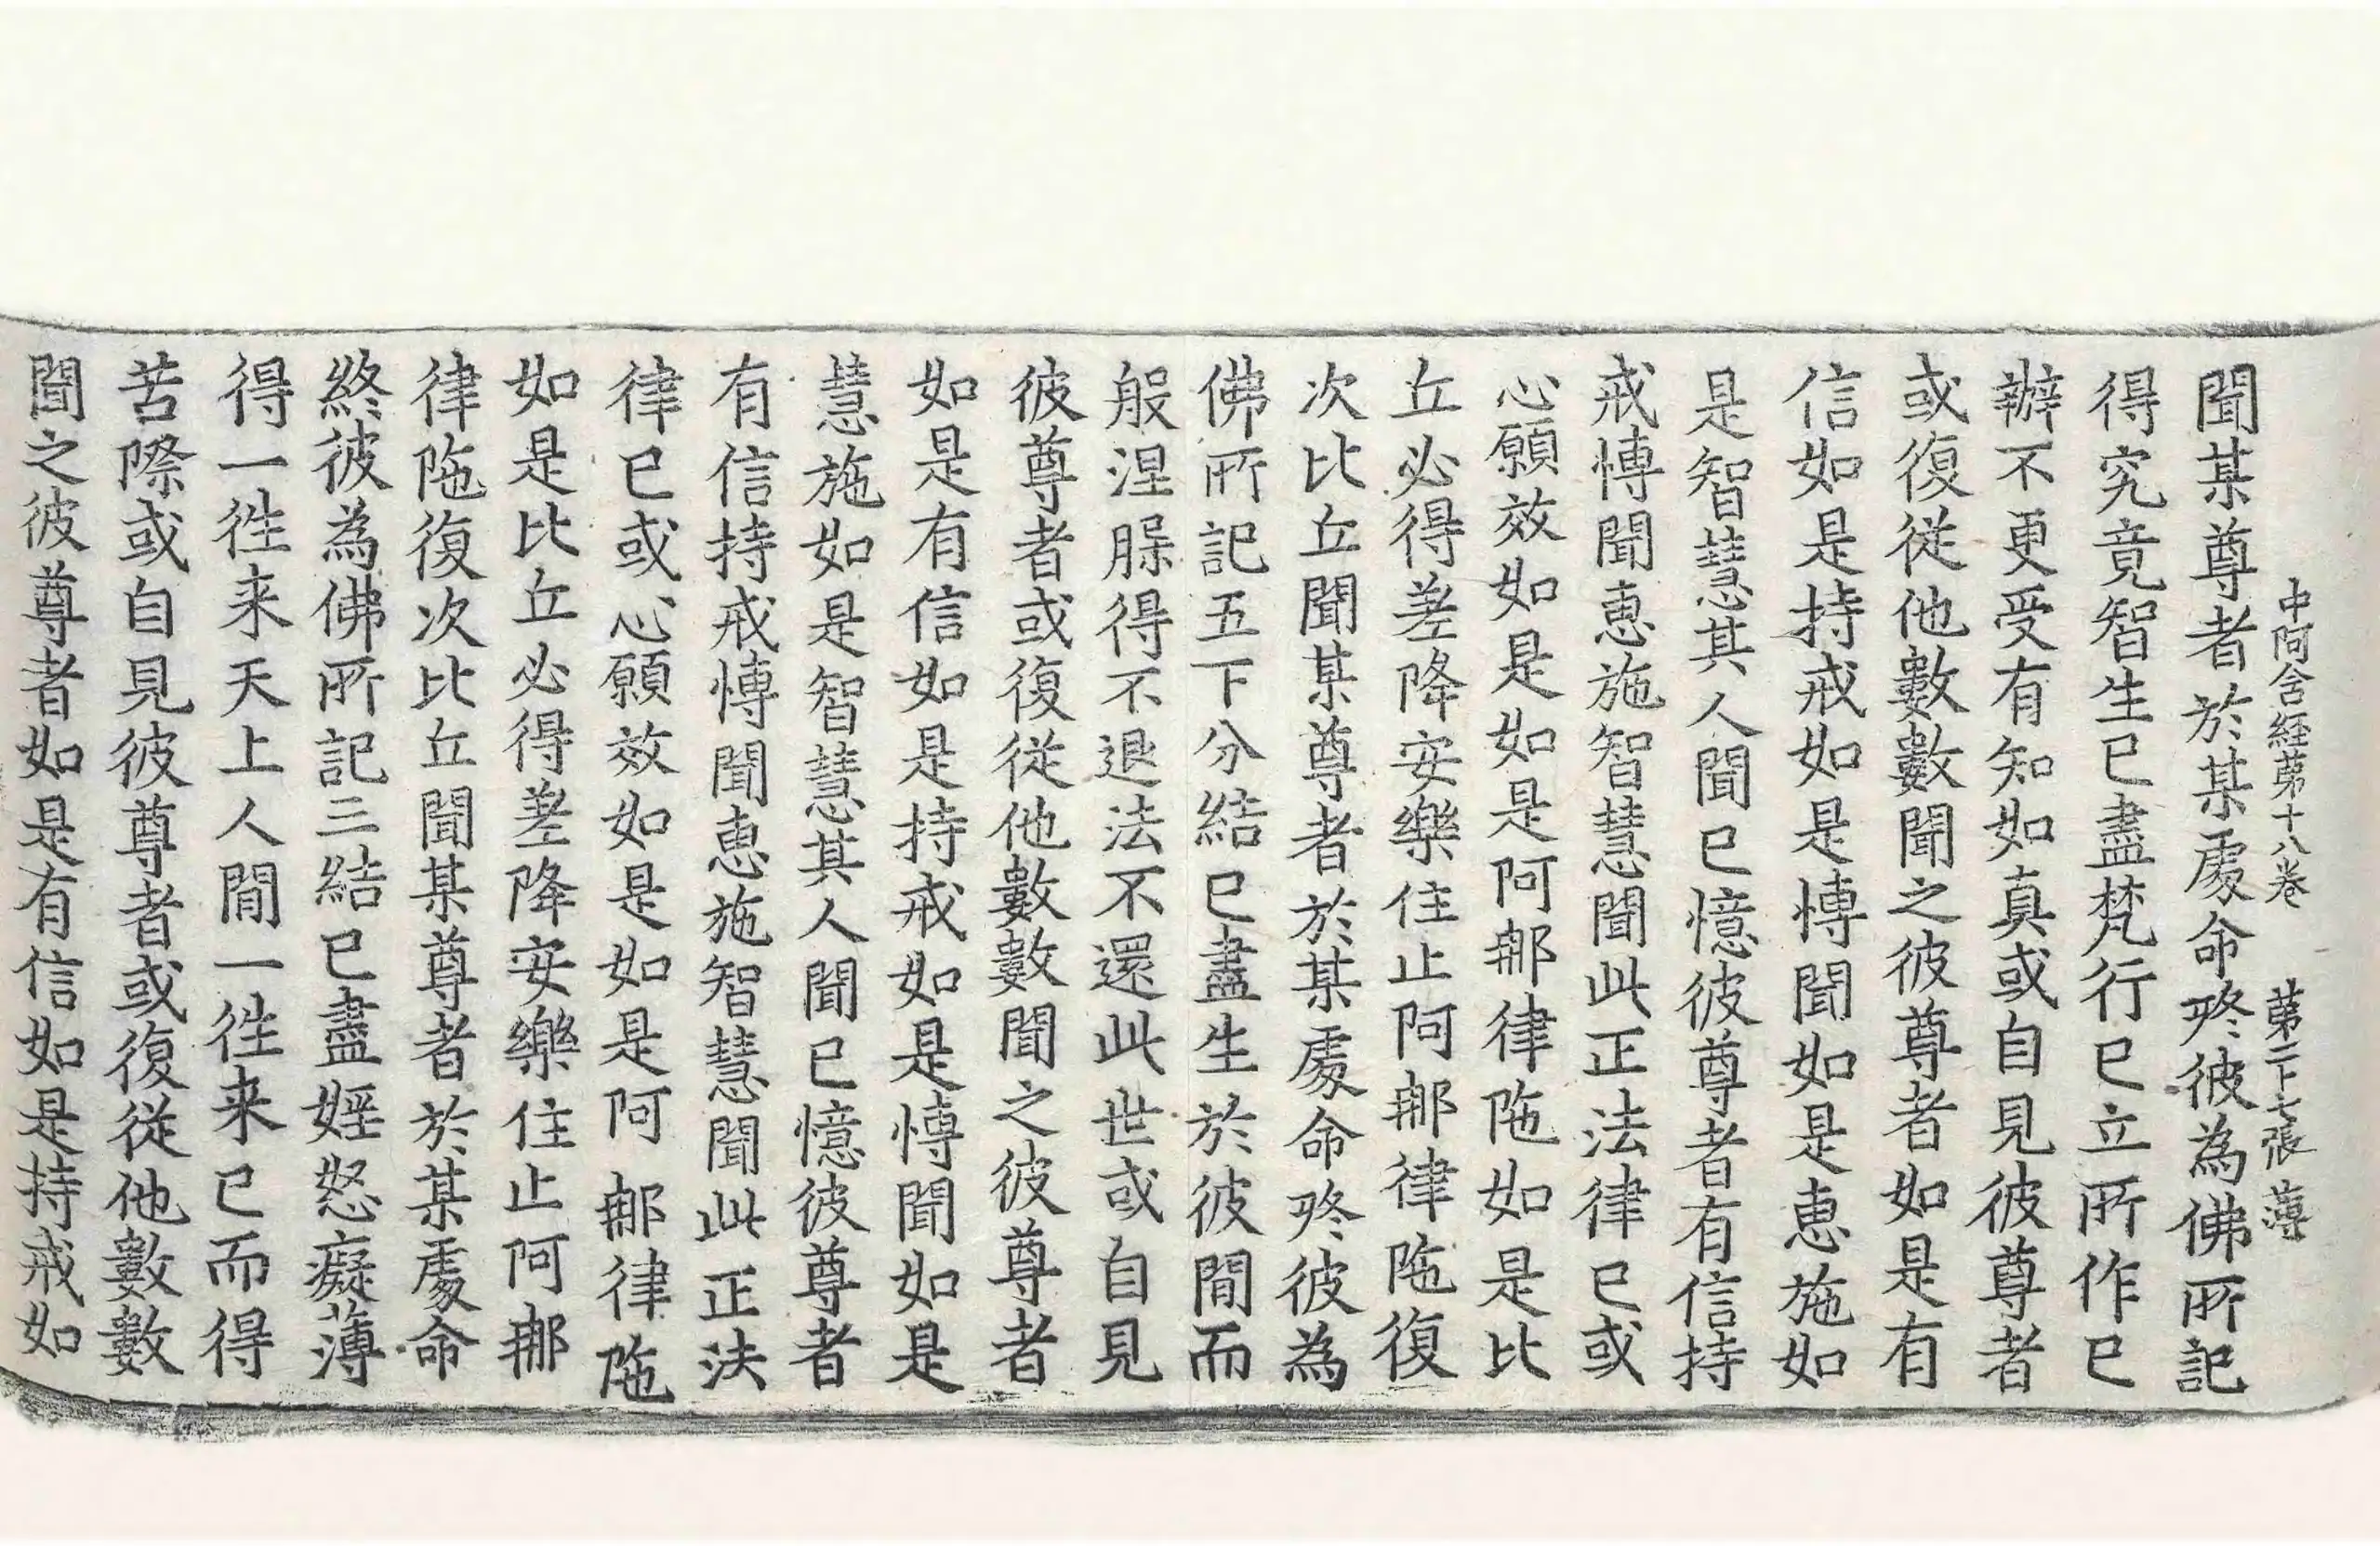 中阿含経苐十八卷　苐二十七張　薄
聞某尊者於某處命終彼為佛所記
得究竟智生已盡梵行已立所作已
辦不更受有知如真或自見彼尊者
或復從他數數聞之彼尊者如是有
信如是持戒如是愽聞如是惠施如
是智慧其人聞已憶彼尊者有信持
戒愽聞惠施智慧聞此正法律已或
心願效如是如是阿那律陁如是比
丘必得差降安樂住止阿那律陁復
次比丘聞某尊者於某處命終彼為
佛所記五下分結已盡生於彼間而
般涅槃得不退法不還此世或自見
彼尊者或復從他數數聞之彼尊者
如是有信如是持戒如是愽聞如是
慧施如是智慧其人聞已憶彼尊者
有信持戒愽聞惠施智慧聞此正法
律已或心願效如是如是阿那律陁
如是比丘必得差降安樂住止阿那
律陁復次比丘聞某尊者於某處命
終彼為佛所記三結已盡婬怒癡薄
得一徃来天上人間一徃来已而得
苦際或自見彼尊者或復從他數數
聞之彼尊者如是有信如是持戒如